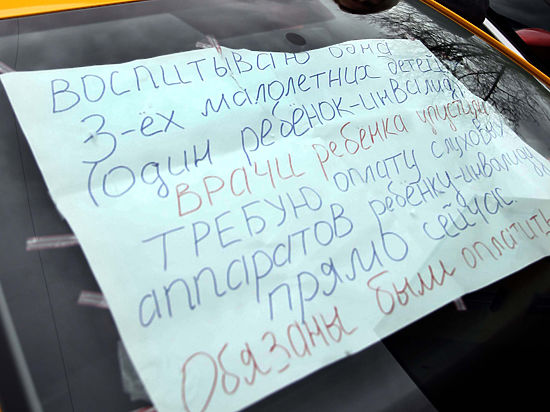 ВОСПИТЫВАЮ одна
3-ёх малолетних детей
(один ребёнок-инвалид)
ВРАЧИ ребёнка упустили
ТРЕБУЮ оплату слуховых
аппаратов ребёнку-инвалиду
ПРЯМО сейчас.
Обязаны были оплатить